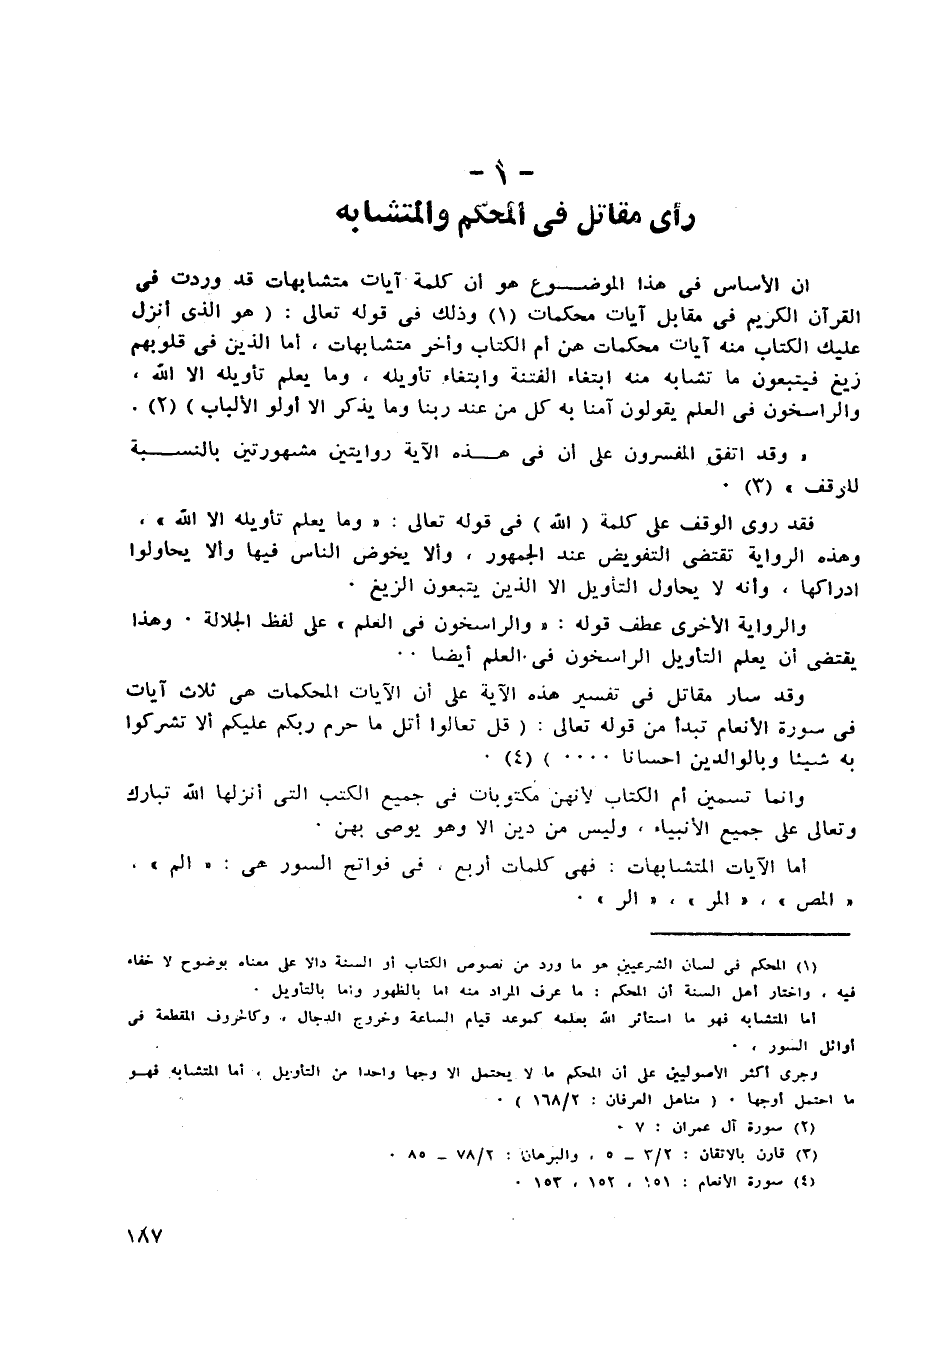 - ١ -
رأى مقاتل فى المحكم والمتشابه
ان الأساس فى هذا الموضـــوع هو أن كلمة آيات متشابهات قد وردت فى
القرآن الكريم فى مقابل آيات محكمات (١) وذلك فى قوله تعالى : ( هو الذى أنزل
عليك الكتاب منه آيات محكمات هن أم الكتاب وأخر متشابهات ، أما الذين فى قلوبهم
زيغ فيتبعون ما تشابه منه ابتغاء الفتنة وابتغاء تأويله ، وما يعلم تأويله الا الله ،
والراسخون فى العلم يقولون آمنا به كل من عند ربنا وما يذكر الا أولو الألباب ) (٢) ٠
« وقد اتفق المفسرون على أن فى هـــذه الآية روايتين مشهورتين بالنســـبة
للوقف » (٣) ٠
فقد روى الوقف على كلمة ( الله ) فى قوله تعالى : « وما يعلم تأويله الا الله » ،
وهذه الرواية تقتضى التفويض عند الجمهور ، وألا يخوض الناس فيها وألا يحاولوا
ادراكها ، وأنه لا يحاول التأويل الا الذين يتبعون الزيغ ٠
والرواية الأخرى عطف قوله : « والراسخون فى العلم » على لفظ الجلالة ٠ وهذا
يقتضى أن يعلم التأويل الراسخون فى العلم أيضا ٠٠
وقد سار مقاتل فى تفسير هذه الآية على أن الآيات المحكمات هى ثلاث آيات
فى سورة الأنعام تبدأ من قوله تعالى : ( قل تعالوا أتل ما حرم ربكم عليكم ألا تشركوا
به شيئا وبالوالدين احسانا ٠٠٠٠ ) (٤) ٠
وانما تسمين أم الكتاب لأنهن مكتوبات فى جميع الكتب التى أنزلها الله تبارك
وتعالى على جميع الأنبياء ، وليس من دين الا وهو يوصى بهن ٠
أما الآيات المتشابهات : فهى كلمات أربع ، فى فواتح السور هى : « الم » ،
« المص » ، « المر » ، « الر » ٠
(١) المحكم فى لسان الشرعيين هو ما ورد من نصوص الكتاب أو السنة دالا على معناه بوضوح لا خفاء
فيه ، واختار أهل السنة أن المحكم : ما عرف المراد منه اما بالظهور واما بالتأويل ٠
أما المتشابه فهو ما استأثر الله بعلمه كموعد قيام الساعة وخروج الدجال ، وكالحروف المقطعة فى
أوائل السور ، ٠
وجرى أكثر الأصوليين على أن المحكم ما لا يحتمل الا وجها واحدا من التأويل ، أما المتشابه فهـو
ما احتمل أوجها ٠ ( مناهل العرفان : ١٦٨/٢ ) ٠
(٢) سورة آل عمران : ٧ ٠
(٣) قارن بالاتقان : ٣/٢ ــ ٥ ، والبرهان : ٧٨/٢ ــ ٨٥ ٠
(٤) سورة الأنعام : ١٥١ ، ١٥٢ ، ١٥٣ ٠
١٨٧